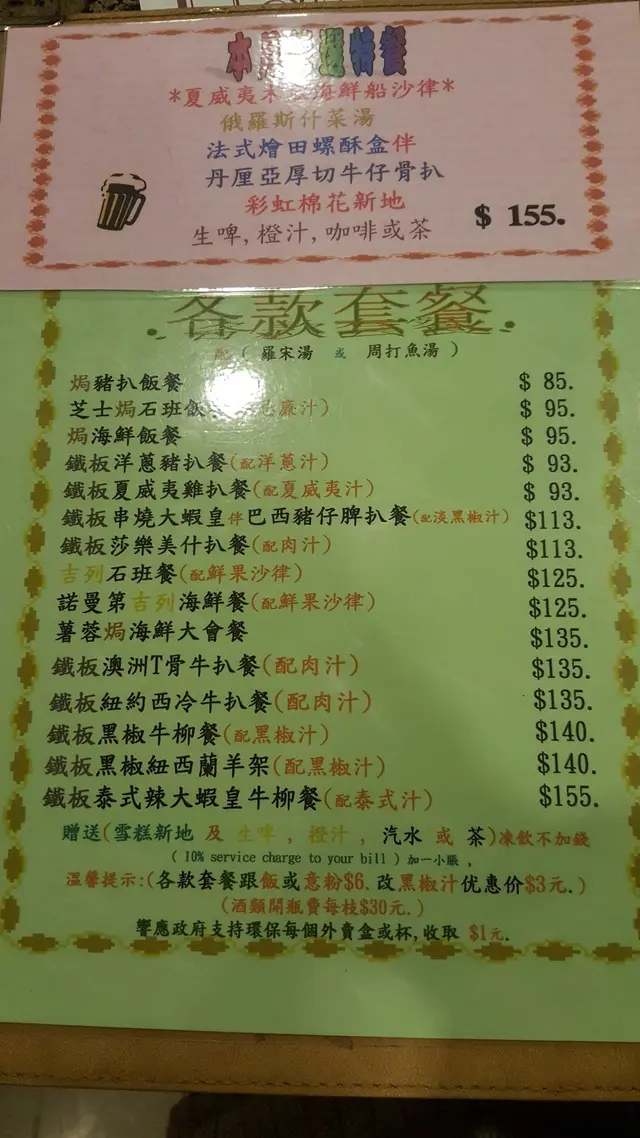 本 特餐
*夏威夷木 海鮮船沙律*
俄羅斯什菜湯
法式燴田螺酥盒伴
丹厘亞厚切牛仔骨扒
彩虹棉花新地
生啤,橙汁,咖啡或茶
$ 155.
各款套餐
配 ( 羅宋湯 或 周打魚湯 )
焗豬扒飯餐 $ 85.
芝士焗石班飯 汁) $ 95.
焗海鮮飯餐 $ 95.
鐵板洋蔥豬扒餐(配洋蔥汁) $ 93.
鐵板夏威夷雞扒餐(配夏威夷汁) $ 93.
鐵板串燒大蝦皇伴巴西豬仔脾扒餐(配淡黑椒汁) $113.
鐵板莎樂美什扒餐(配肉汁) $113.
吉列石班餐(配鮮果沙律) $125.
諾曼第吉列海鮮餐(配鮮果沙律) $125.
薯蓉焗海鮮大會餐 $135.
鐵板澳洲T骨牛扒餐(配肉汁) $135.
鐵板紐約西冷牛扒餐(配肉汁) $135.
鐵板黑椒牛柳餐(配黑椒汁) $140.
鐵板黑椒紐西蘭羊架(配黑椒汁) $140.
鐵板泰式辣大蝦皇牛柳餐(配泰式汁) $155.
贈送(雪糕新地 及 生啤 , 橙汁 , 汽水 或 茶)凍飲不加錢
( 10% service charge to your bill ) 加一小賬 ,
溫馨提示:(各款套餐跟飯或意粉$6. 改黑椒汁优惠价$3元.)
(酒類開瓶費每枝$30元.)
響應政府支持環保每個外賣盒或杯,收取 $1元.